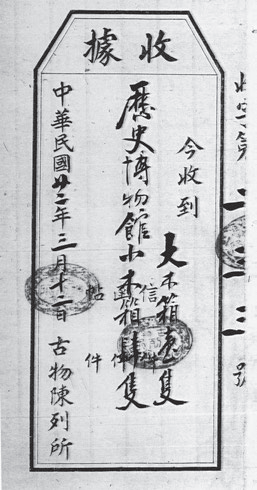 收據
今收到
大木箱壹隻
歷史博物館小木箱肆隻
信件
帖件
中華民國廿二年三月十二日 古物陳列所
號